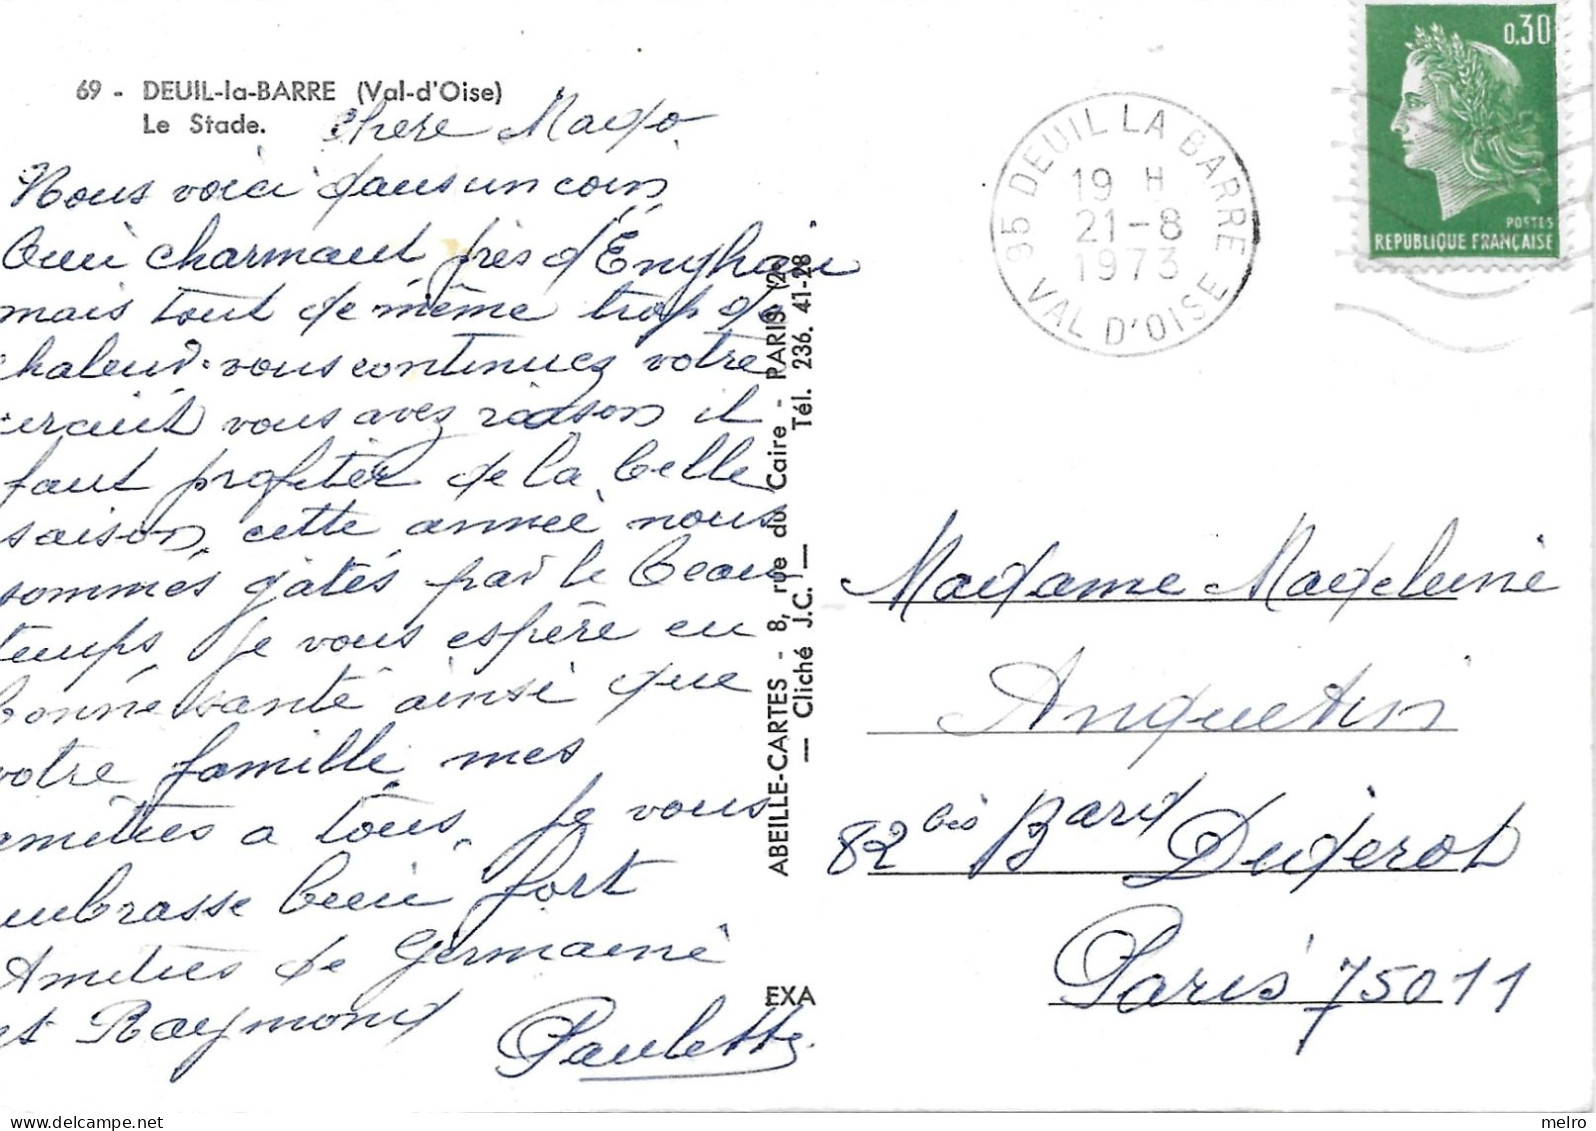 69 - DEUIL-la-BARRE (Val-d'Oise)
Le Stade.
Chere Mado
Nous voici dans un coin
bien charmant près d'Enghien
mais tout de même trop de
chaleur. vous continuez votre
circuit vous avez raison il
faut profiter de la belle
saison, cette année nous
sommes gâtés par le beau
temps je vous espère en
bonne santé ainsi que
votre famille mes
amitiés a tous. je vous
embrasse bien fort
Amitiés de Germaine
et Raymond
Paulette
ABEILLE-CARTES - 8, rue du Caire - PARIS (2e)
— Cliché J.C. — Tél. 236. 41-28
EXA
95 DEUIL LA BARRE
19 H
21-8
1973
VAL D'OISE
0,30
POSTES
REPUBLIQUE FRANÇAISE
Madame Madeleine
Anquetin
82 bis Bard Diderot
Paris 75011
www.delcampe.net
melro